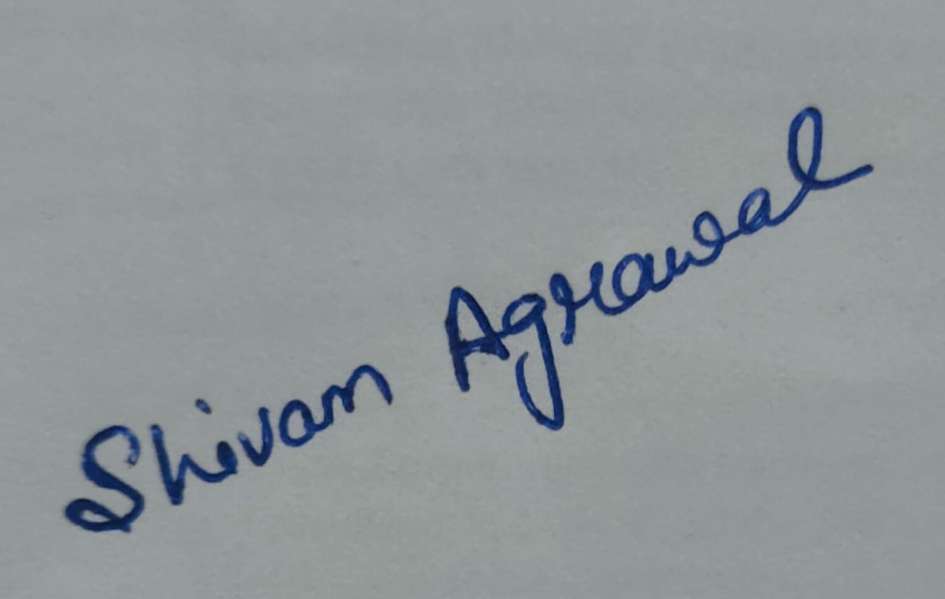 Shivam Agrawal